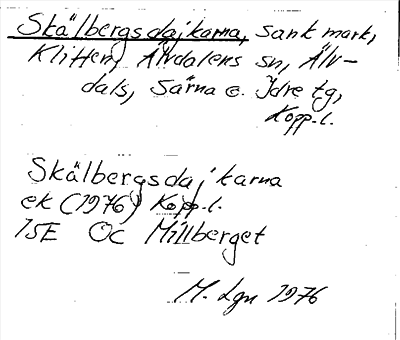 Skälbergsdajkarna, sank mark,
Klitten, Älvdalens sn, Älv-
dals, Särna o. Idre tg,
Kopp.l.
Skälbergsdajkarna
ek (1976) Kopp.l.
15E 0c Millberget
M. Lgn 1976